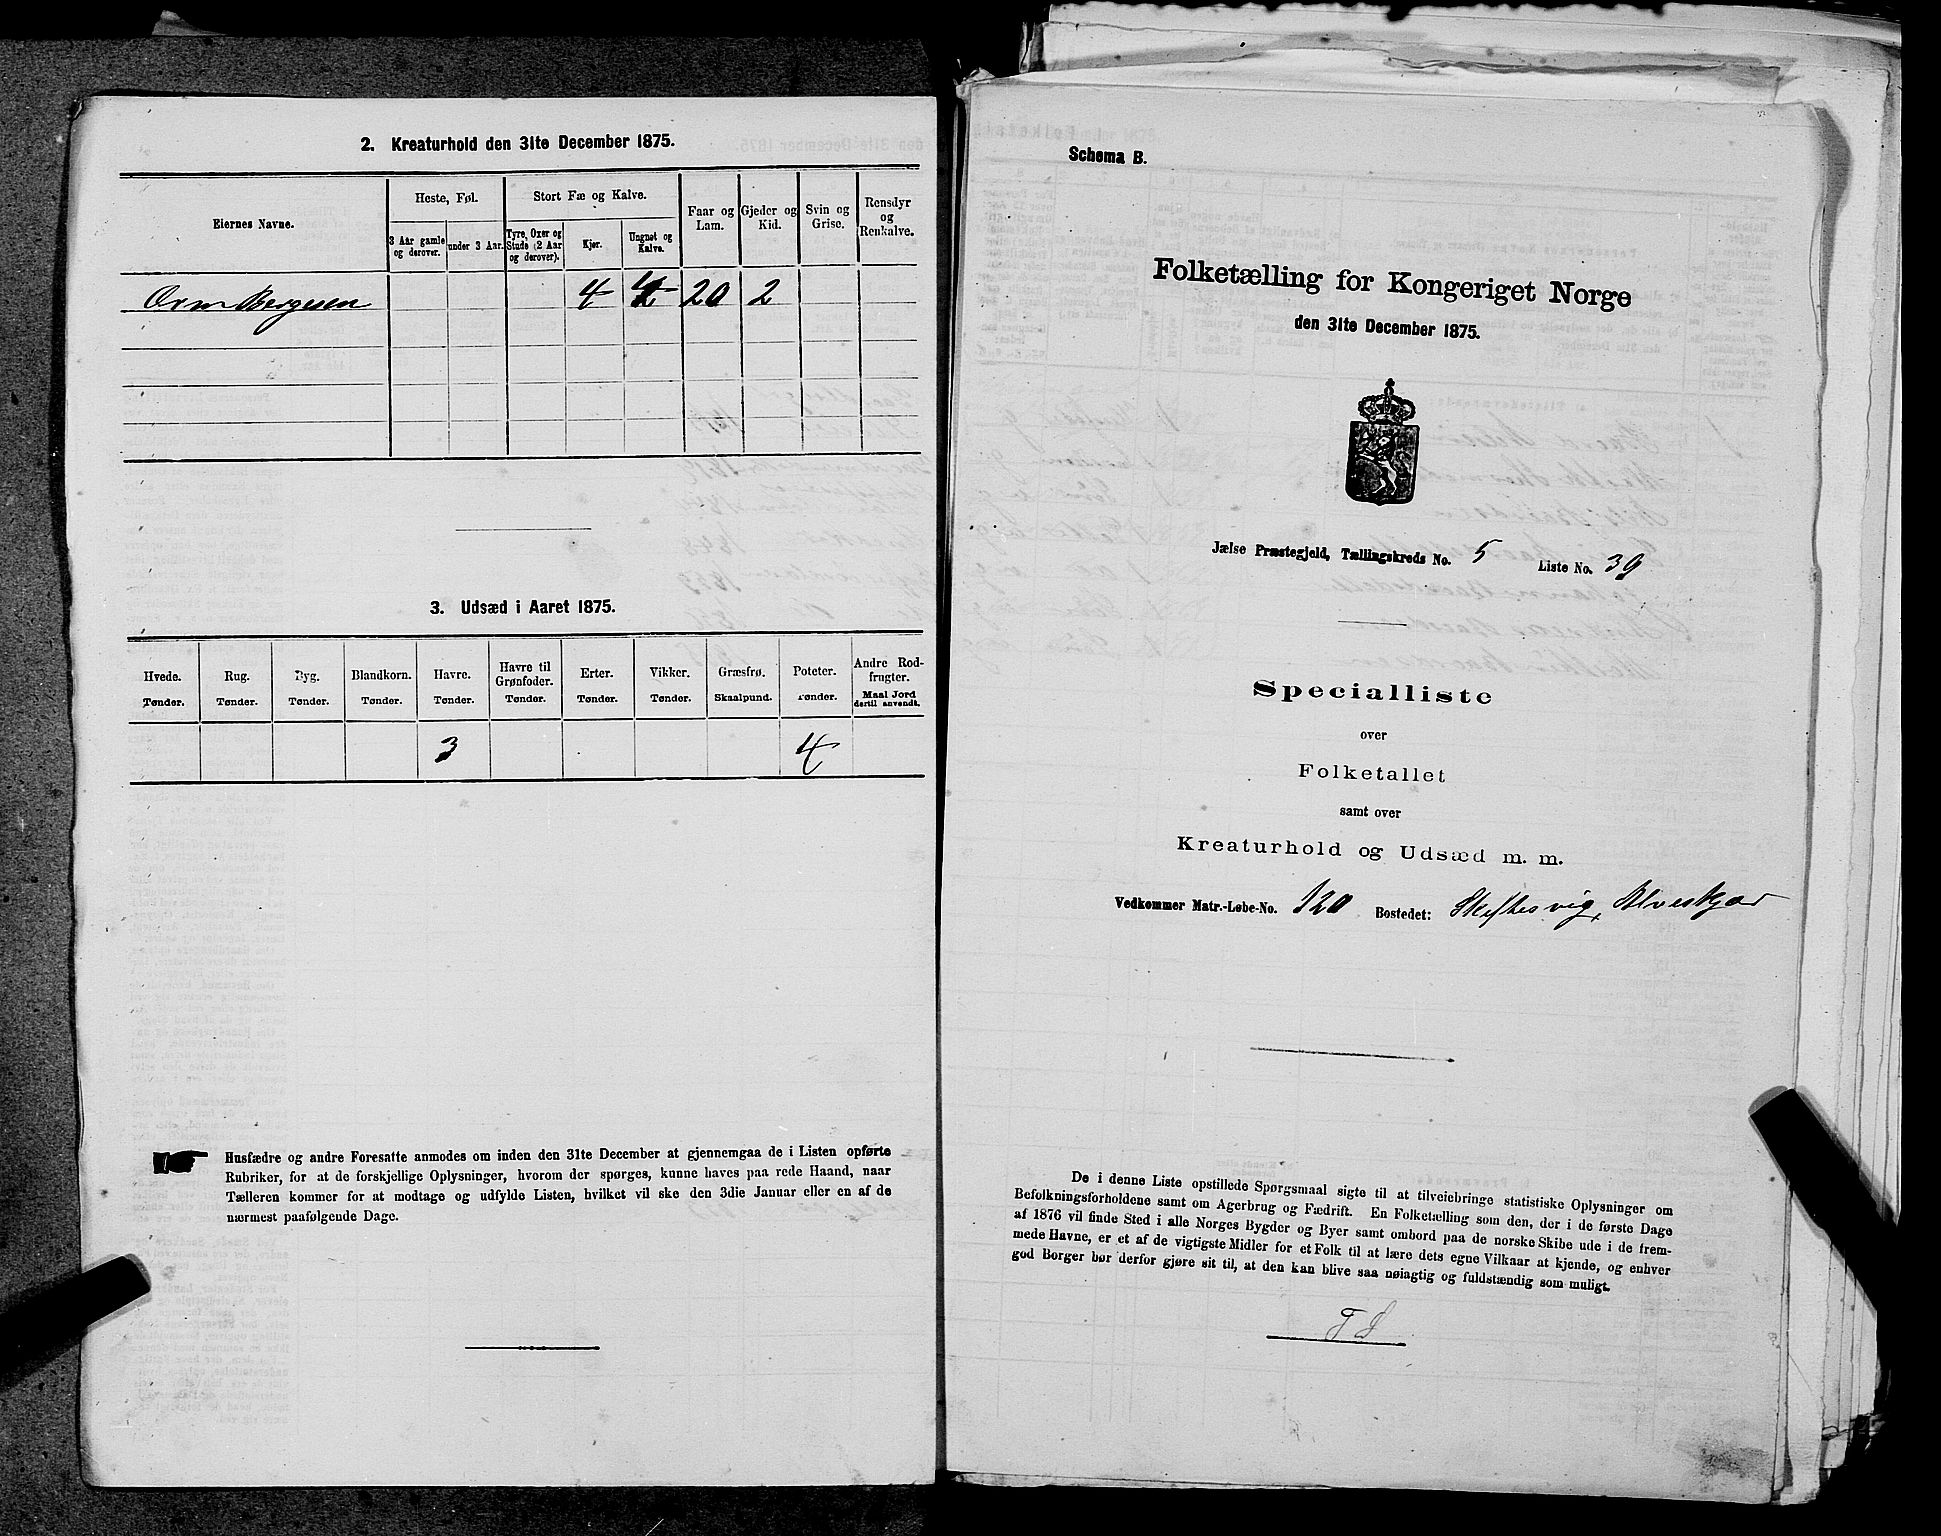 2. Kreaturhold den 31te December 1875.
Eiernes Navne.
Heste, Føl.
Stort Fæ og Kalve.
Faar og Lam.
Gjeder og Kid.
Svin og Grise.
Rensdyr og Renkalve.
3 Aar gamle og derover.
under 3 Aar.
Tyre, Oxer og Stude (2 Aar og derover).
Kjør.
Ungnøt og Kalve.
Orm Bergesen 4 20 2
3. Udsæd i Aaret 1875.
Hvede. Rug. Byg. Blandkorn. Havre. Havre til Grønfoder. Erter. Vikker. Græsfrø. Poteter. Andre Rodfrugter.
Tønder. Tønder. Tønder. Tønder. Tønder. Tønder. Tønder. Tønder. Skaalpund. Tønder. Maal Jord dertil anvendt.
3 4
Husfædre og andre Foresatte anmodes om inden den 31te December at gjennemgaa de i Listen opførte
Rubriker, for at de forskjellige Oplysninger, hvorom der spørges, kunne haves paa rede Haand, naar
Tælleren kommer for at modtage og udfylde Listen, hvilket vil ske den 3die Januar eller en af de
nærmest paafølgende Dage.
Schema B.
Folketælling for Kongeriget Norge
den 31te December 1875.
Jælse Præstegjeld, Tællingskreds No. 5 Liste No. 39
Specialliste
over
Folketallet
samt over
Kreaturhold og Udsæd m. m.
Vedkommer Matr.-Løbe-No. 120 Bostedet: Skiftesvig, Alveskjær
De i denne Liste opstillede Spørgsmaal sigte til at tilveiebringe statistiske Oplysninger om
Befolkningsforholdene samt om Agerbrug og Fædrift. En Folketælling som den, der i de første Dage
af 1876 vil finde Sted i alle Norges Bygder og Byer samt ombord paa de norske Skibe ude i de frem-
mede Havne, er et af de vigtigste Midler for et Folk til at lære dets egne Vilkaar at kjende, og enhver
god Borger bør derfor gjøre sit til, at den kan blive saa nøiagtig og fuldstændig som muligt.